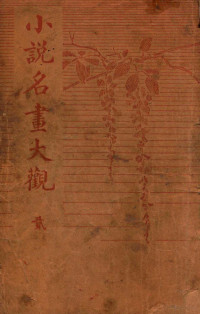 小說名畫大觀
貳